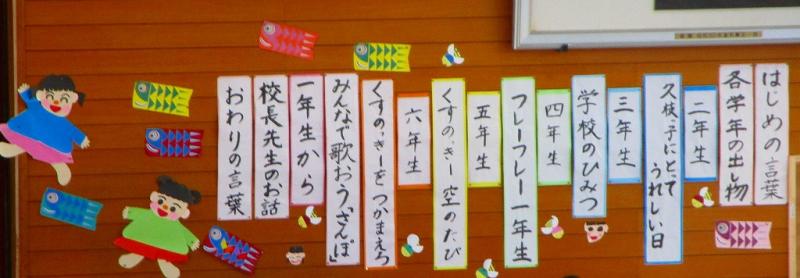 はじめの言葉
各学年の出し物
二年生
久枝っ子にとって
うれしい日
三年生
学校のひみつ
四年生
フレーフレー一年生
五年生
くすのっきー空のたび
六年生
くすのっきーをつかまえろ
みんなで歌おう「さんぽ」
一年生から
校長先生のお話
おわりの言葉